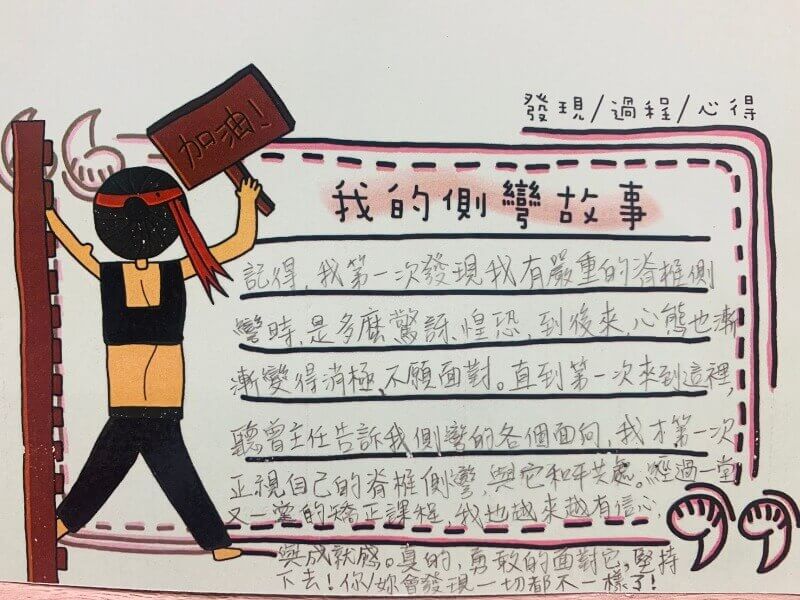 發現/過程/心得
加油!
我的側彎故事
記得,我第一次發現我有嚴重的脊椎側
彎時,是多麼驚訝、惶恐,到後來,心態也漸
漸變得消極、不願面對。直到第一次來到這裡,
聽曾主任告訴我側彎的各個面向,我才第一次
正視自己的脊椎側彎,與它和平共處。經過一堂
又一堂的矯正課程,我也越來越有信心
與成就感。真的,勇敢的面對它,堅持
下去!你/妳會發現一切都不一樣了!